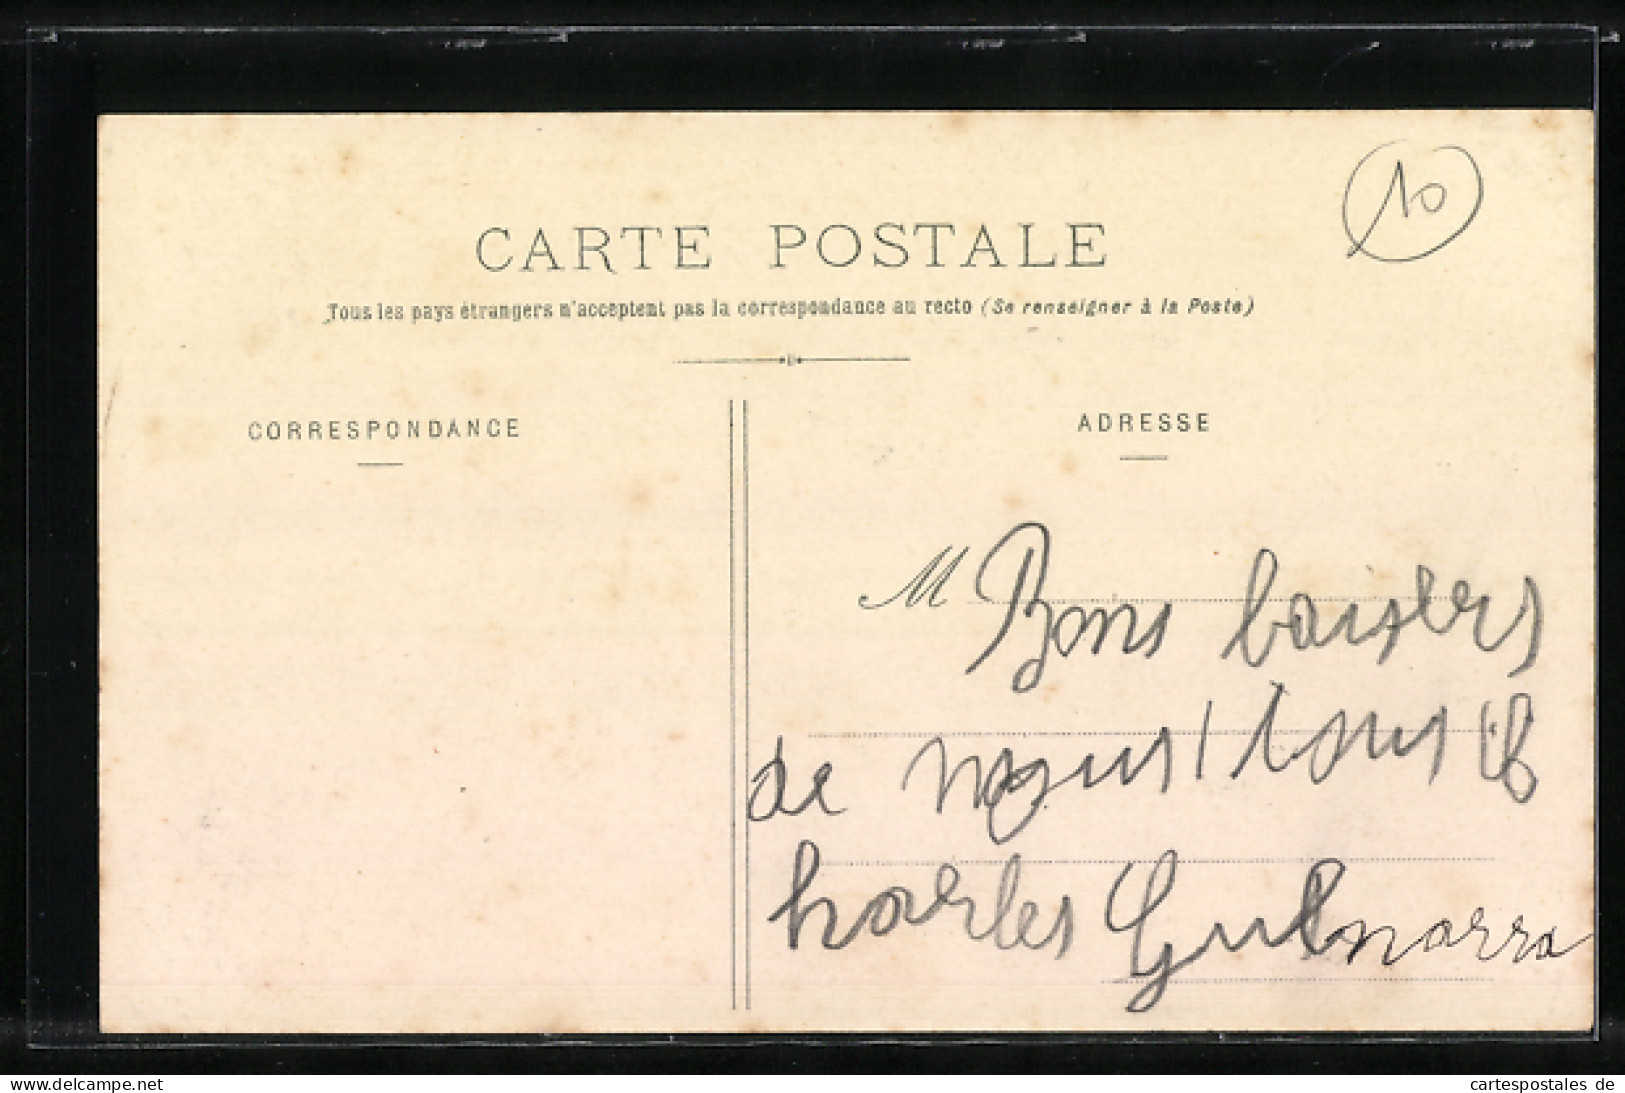 10
CARTE POSTALE
Tous les pays étrangers n'acceptent pas la correspondance au recto (Se renseigner à la Poste)
CORRESPONDANCE
ADRESSE
M Bons baisers
de nous tous
harles
cartes-postales-delcampe.eu
cartespostales de